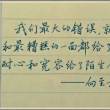 我们最大的错误，就
和最糟糕的一面都给了
耐心和宽容给了陌生
——何